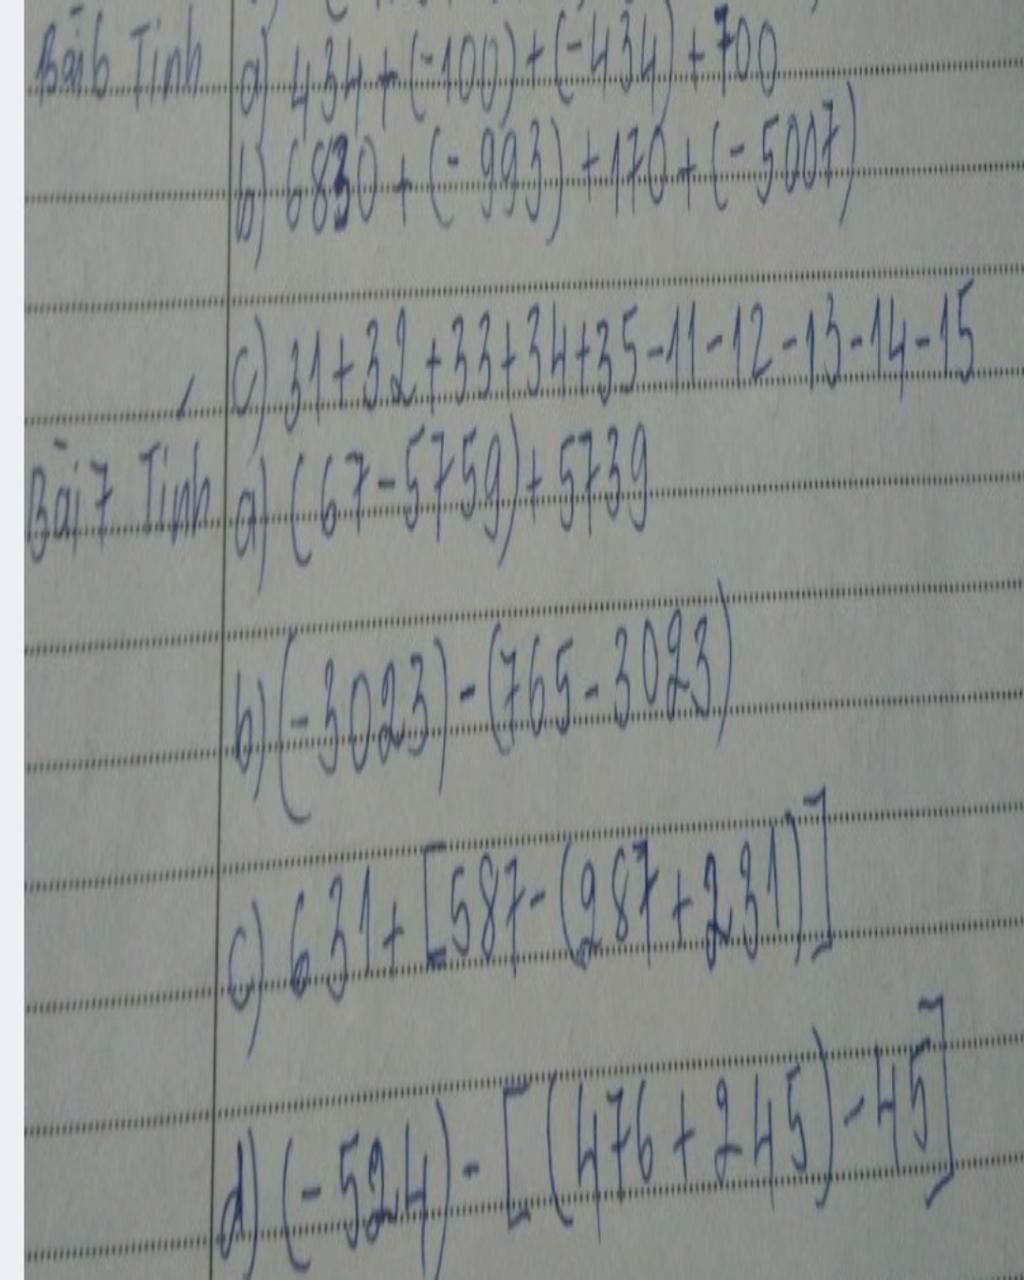 Bài 6 Tính a) 434+(-100)+(-434)+700
b) 6830+(-993)+170+(-5007)
c) 31+32+33+34+35-11-12-13-14-15
Bài 7 Tính a) (67-5759)+5739
b) (-3023)-(765-3023)
c) 631+[587-(287+231)]
d) (-524)-[(476+245)-45]